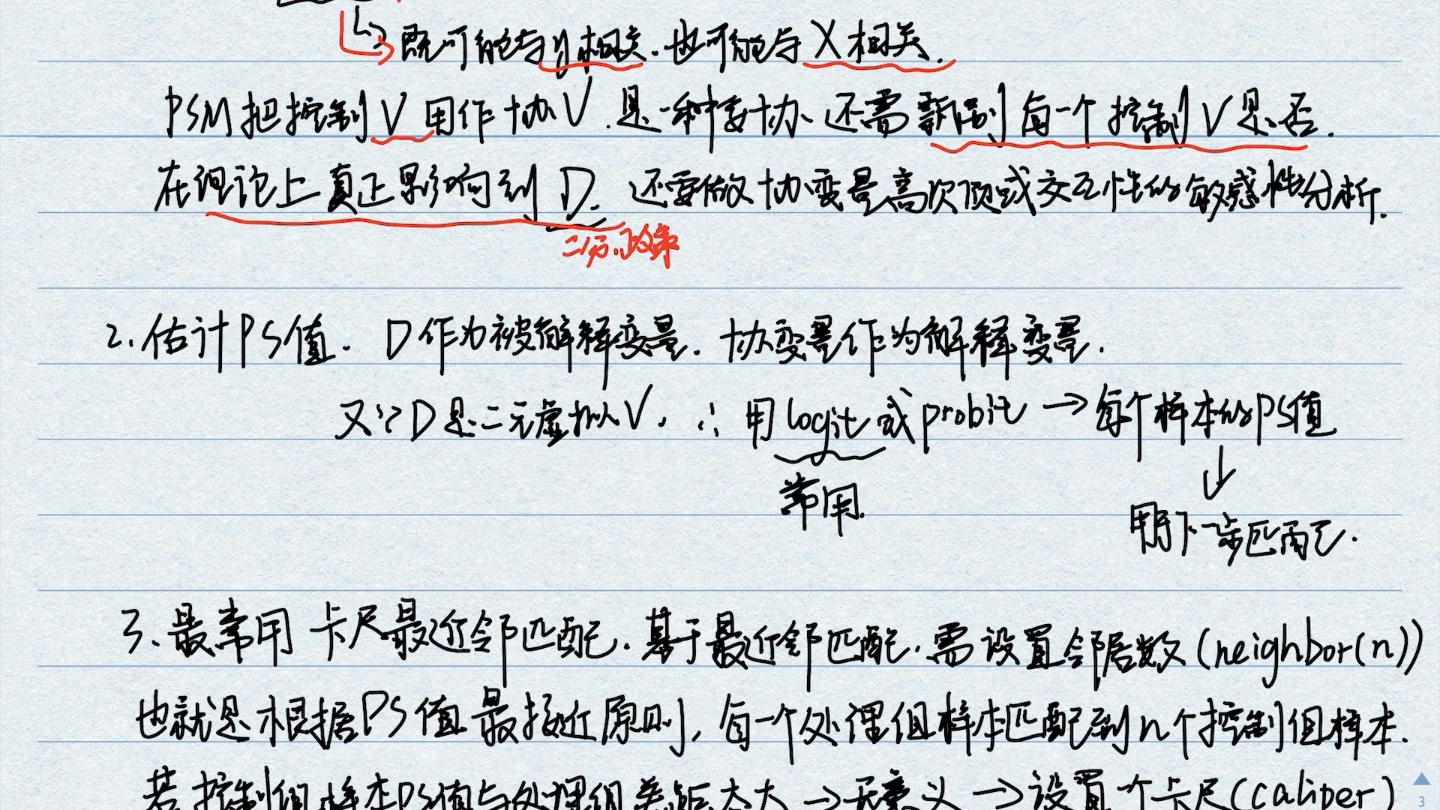 既可能与y相关.也可能与X相关.
PSM把控制V用作协V.是一种妥协.还需甄别每一个控制V是否.
在理论上真正影响到D.还要做协变量高次项或交互性的敏感性分析.
政策
2.估计PS值.D作为被解释变量.协变量作为解释变量.
又∵D是二元虚拟V,∴用logit或probit→每个样本的PS值
常用.
↓
用于下一步匹配.
3、最常用卡尺最近邻匹配.基于最近邻匹配.需设置邻居数(neighbor(n))
也就是根据PS值最接近原则,每一个处理组样本匹配到n个控制组样本.
若控制组样本PS值与处理组差距太大→无意义→设置个卡尺(caliper)
3